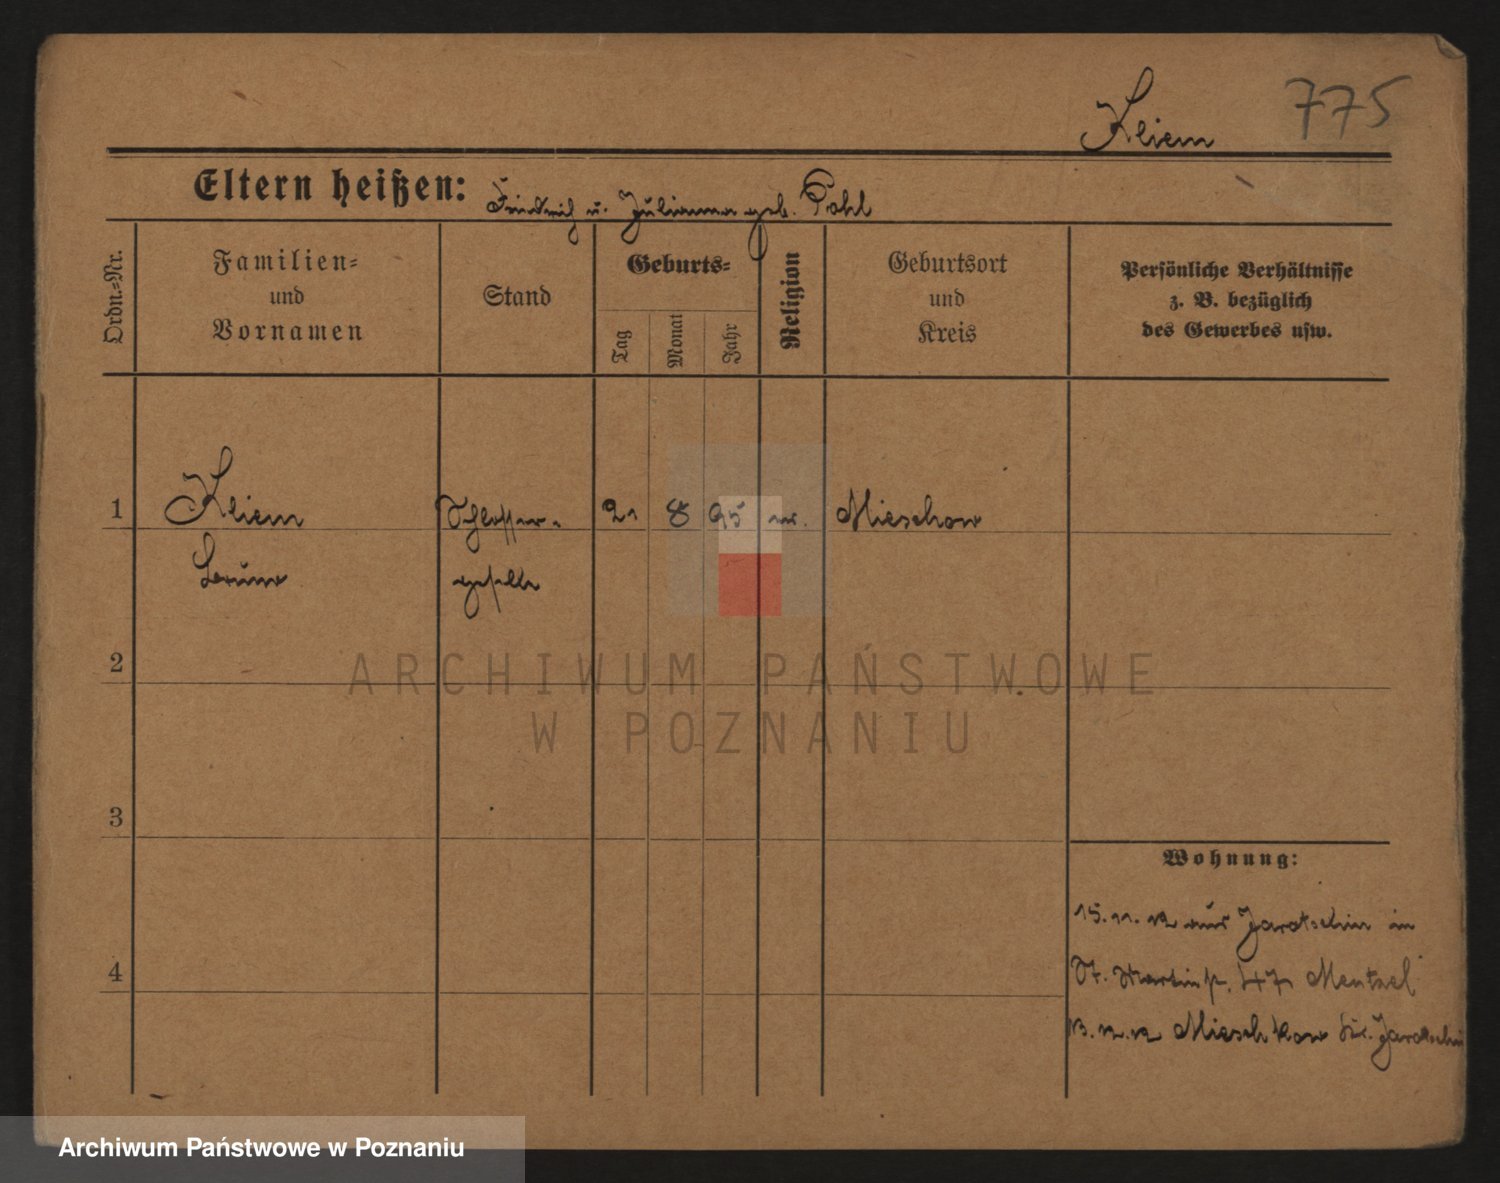 Kliem 775
Eltern heißen: Friedrich u. Julianna geb. Pohl
Ordn.=Nr.
Familien=
und
Vornamen
Stand
Geburts=
Tag
Monat
Jahr
Religion
Geburtsort
und
Kreis
Persönliche Verhältnisse
z. B. bezüglich
des Gewerbes usw.
1 Kliem Schlosser= 21 8 95 Mieschow
Bruno geselle
2
3
4
Wohnung:
15. 11. 12 aus Jarotschin in
St. Martinstr. 47 Mentzel
13. 12. 12 Mieschkow Kr. Jarotschin
ARCHIWUM PAŃSTWOWE
W POZNANIU
Archiwum Państwowe w Poznaniu